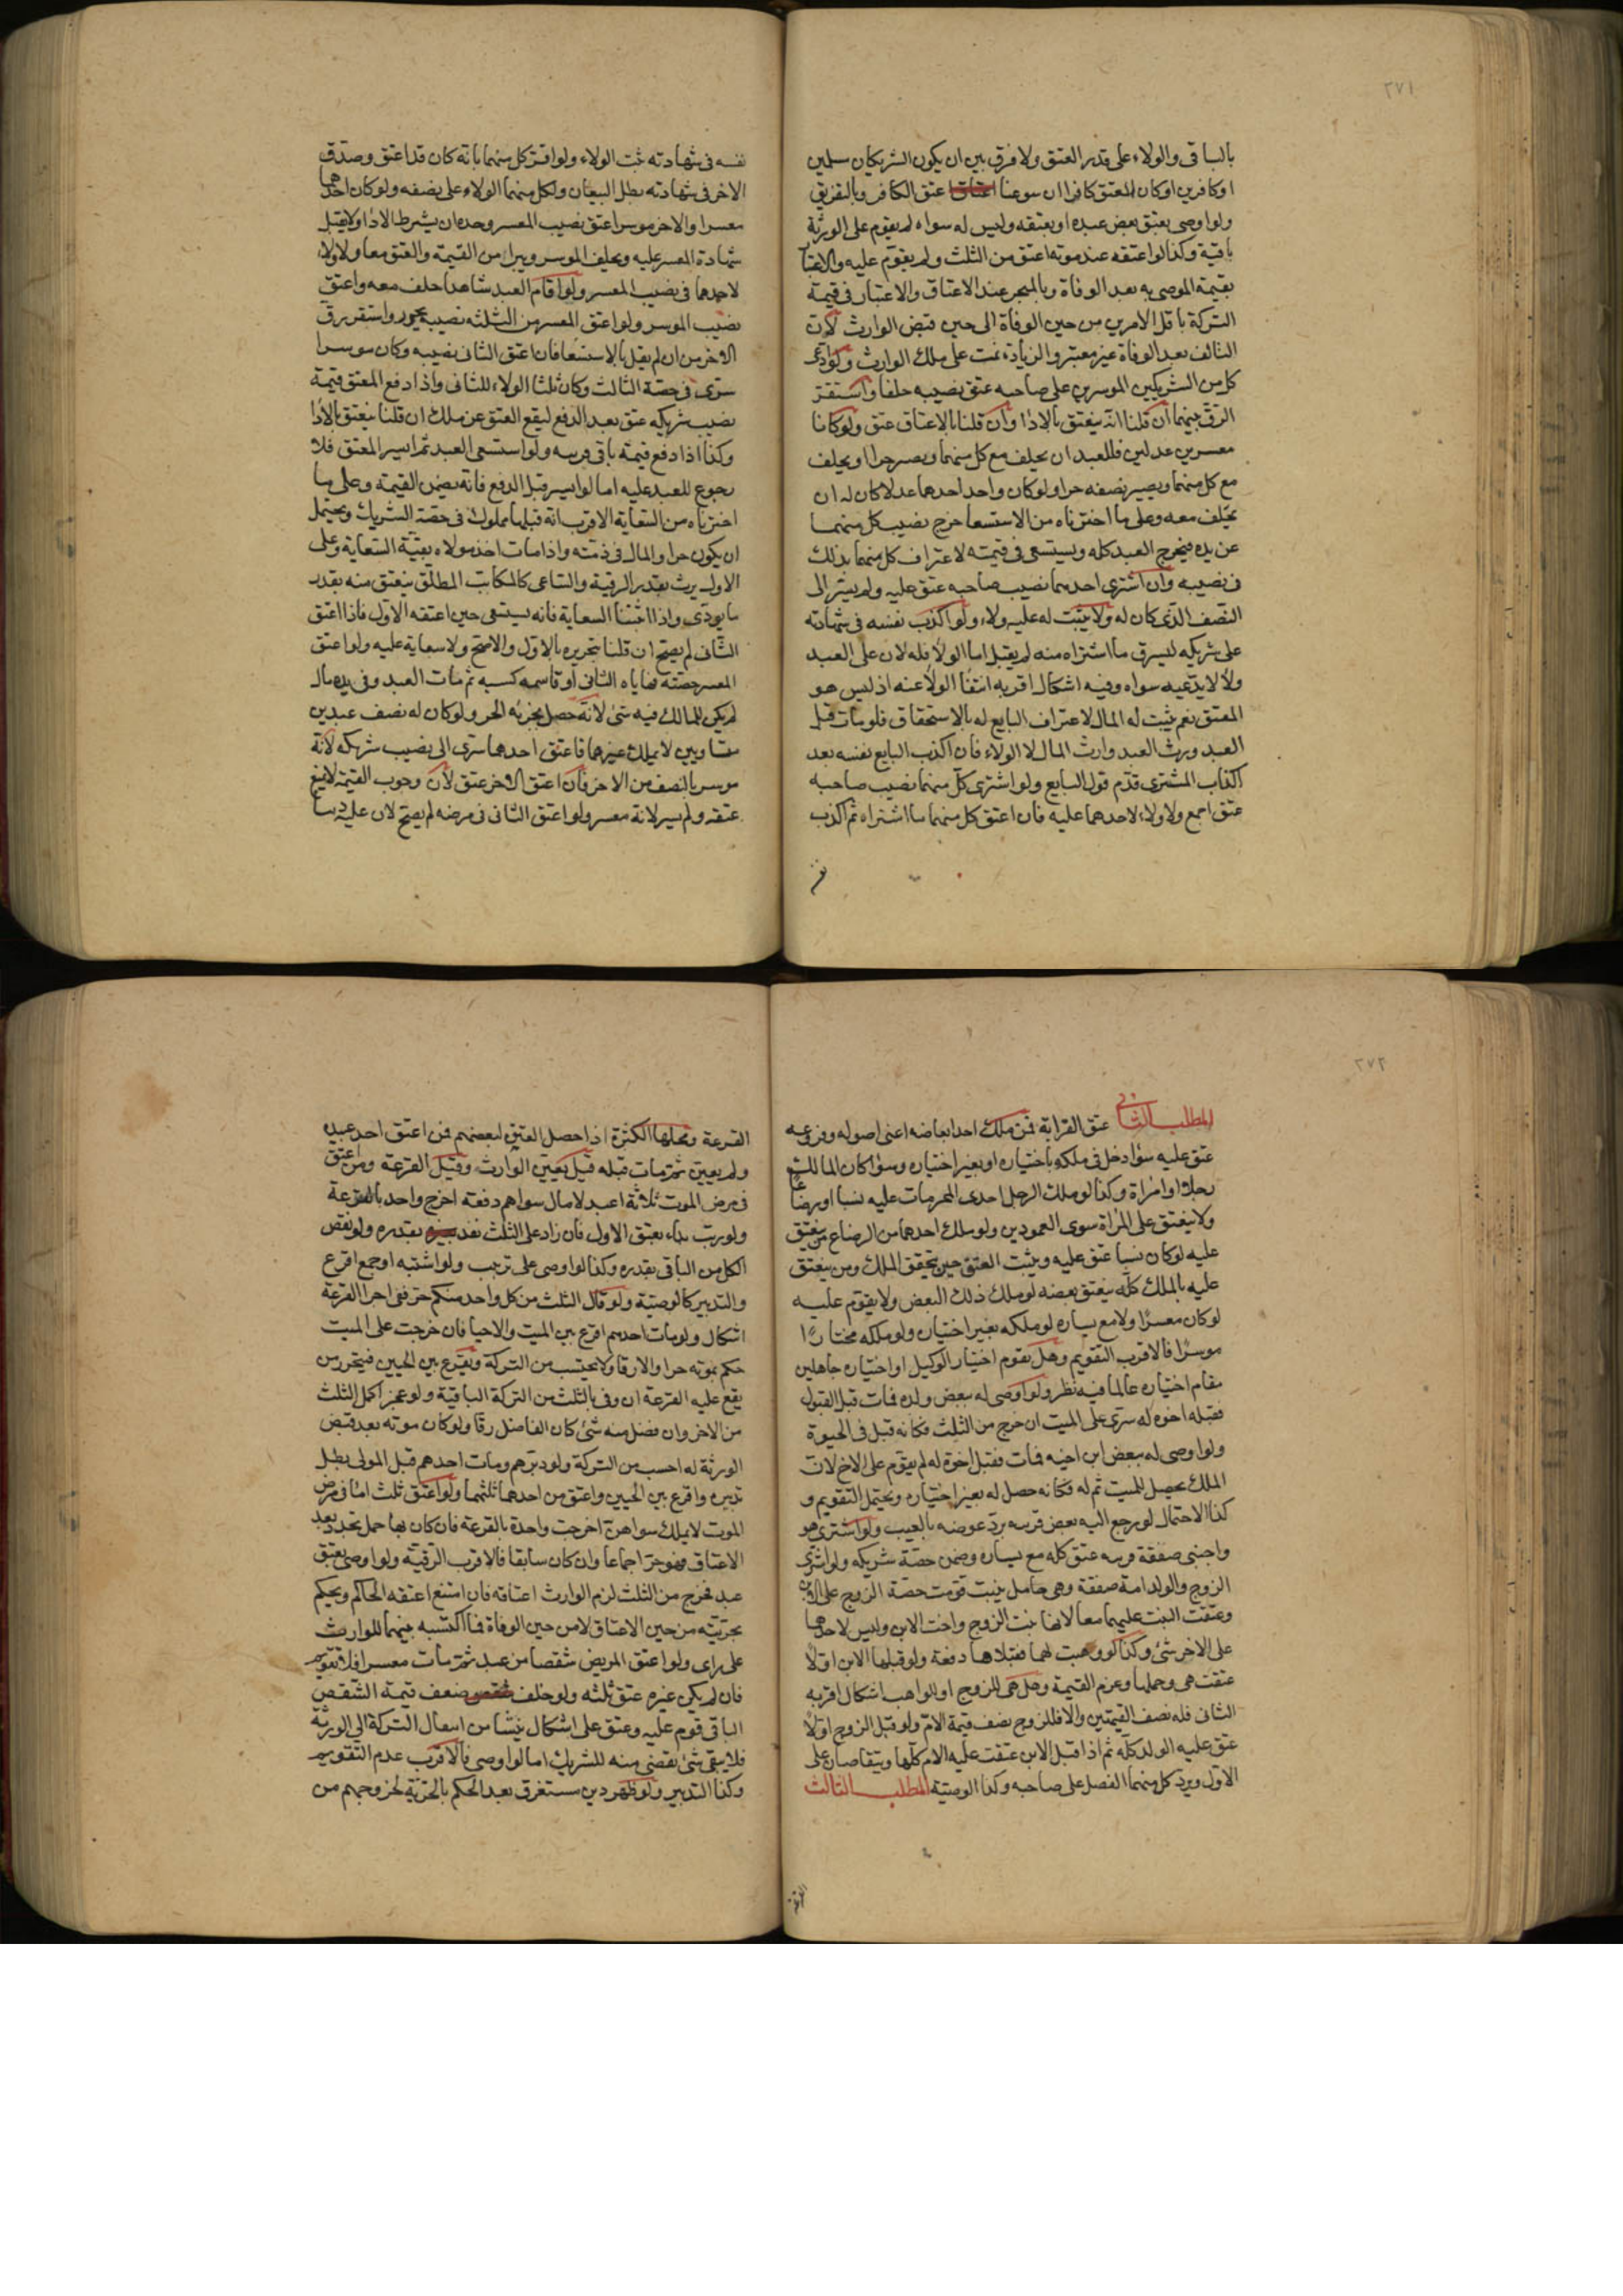 ٢٧١
بالباقى والولاء على قدر العتق ولا فرق بين ان يكون الشريكان مسلمين
اوكافرين اوكان المعتق كافرا ان سوغنا عتق الكافر وبالتفريق
ولو اوصى بعتق بعض عبده او بعتقه وليس له سواه لم يقوم على الورثة
باقية وكذا لو اعتقه عند موته اعتق من الثلث ولم يقوم عليه والاعتبار
بقيمة الموصى به بعد الوفاة وبالمنجز عند الاعتاق والاعتبار فى قيمة
التركة باقل الامرين من حين الوفاة الى حين قبض الوارث لان
التالف بعد الوفاة غير معتبر والزيادة نمت على ملك الوارث ولو ادعى
كل من الشريكين الموسرين على صاحبه عتق نصيبه حلفا واستقر
الرق بينهما ان قلنا انه ينعتق بالادا وان قلنا بالاعتاق عتق ولو كانا
معسرين عدلين فللعبد ان يحلف مع كل منهما ويصير حرا او يحلف
مع كل منهما ويصير نصفه حرا ولو كان واحد احدهما عدلا كان له ان
يحلف معه وعلى ما اخترناه من الاستسعا خرج نصيب كل منهما
عن يده فيخرج العبد كله ويستسعى فى قيمته لاعتراف كل منهما بذلك
فى نصيبه وان اشترى احدهما نصيب صاحبه عتق عليه ولم يسر الى
النصف الذى كان له ولا يثبت له عليه ولاء ولو اكذب نفسه فى شهادته
على شريكه ليسرق ما اشتراه منه لم يقبل اما الولا فله لان على العبد
ولا لا يدعيه سواه وفيه اشكال اقربه انتفا الولا عنه اذ ليس هو
المعتق نعم يثبت له المال لاعتراف البايع له بالاستحقاق فلو مات قبل
العبد ورث العبد وارث المال لا الولاء فان اكذب البايع نفسه بعد
اكذاب المشترى قدم قول البايع ولو اشترى كل منهما نصيب صاحبه
عتق اجمع ولا ولاء لاحدهما عليه فان اعتق كل منهما ما اشتراه ثم اكذب
نفسه
نفسه فى شهادته ثبت الولاء ولو اقر كل منهما بانه كان قد اعتق وصدق
الاخر فى شهادته بطل البيعان ولكل منهما الولاء على نصفه ولو كان احدهما
معسرا والاخر موسرا عتق نصيب المعسر وحده ان يشرط الادا ولا يقبل
شهادة المعسر عليه ويحلف الموسر ويبرا من القيمة والعتق معا ولا ولاء
لاحدهما فى نصيب المعسر ولو اقام العبد شاهدا حلف معه واعتق
نصيب الموسر ولو اعتق المعسر من الثلثه نصيبه تحرر واستقر رق
الاخرين ان لم يقل بالاستسعا فان اعتق الثانى نصيبه وكان موسرا
سرى فى حصة الثالث وكان ثلثا الولاء للثانى واذا دفع المعتق قيمة
نصيب شريكه عتق بعد الدفع ليقع العتق عن ملك ان قلنا ينعتق بالادا
وكذا اذا دفع قيمة باقى قريبه ولو استسعى العبد ثم ايسر المعتق فلا
رجوع للعبد عليه اما لو ايسر قبل الدفع فانه يضمن القيمة وعلى ما
اخترناه من السعاية الاقرب انه قبلها مملوك فى حصة الشريك ويحتمل
ان يكون حرا والمال فى ذمته واذا مات اخذ مولاه بقية السعاية وعلى
الاول يرث بقدر الرقية والساعى كالمكاتب المطلق ينعتق منه بقدر
ما يودى واذا اثبتنا السعاية فانه يستسعى حين اعتقه الاول فاذا اعتق
الثانى لم يصح ان قلنا بتحريره بالاول والاصح ولا سعاية عليه ولو اعتق
المعسر حصته فهاياه الثانى او قاسمه كسبه ثم مات العبد وفى يده مال
لم يكن للمالك فيه شئ لانه حصل بجزئه الحر ولو كان له نصف عبدين
متساويين لا يملك غيرهما فاعتق احدهما سرى الى نصيب شريكه لانه
موسر بالنصف من الاخر فان اعتق الاخر عتق لان وجوب القيمة لا يمنع
عتقه ولم يسر لانه معسر ولو اعتق الثانى فى مرضه لم يصح لان عليه دينا
٢٧٢
المطلب الثانى عتق القرابة فمن ملك احد ابعاضه اعنى اصوله وفروعه
عتق عليه سوا دخل فى ملكه باختياره او بغير اختياره وسوا كان المالك
رجلا او امراة وكذا لو ملك الرجل احدى المحرمات عليه نسبا او رضاعا
ولا ينعتق على المراة سوى العمودين ولو ملك احدهما من الرضاع من ينعتق
عليه لو كان نسبا عتق عليه ويثبت العتق حين تحقق الملك ومن ينعتق
عليه بالملك كله ينعتق بعضه لو ملك ذلك البعض ولا يقوم عليه
لو كان معسرا ولا مع يساره لو ملكه بغير اختياره ولو ملكه مختارا
موسرا فالاقرب التقويم وهل يقوم اختيار الوكيل او اختياره جاهلين
مقام اختياره عالما فيه نظر ولو اوصى له ببعض ولده فمات قبل القبول
فقبله اخوه له سرى على الميت ان خرج من الثلث فكانه قبل فى الحيوة
ولو اوصى له ببعض ابن اخيه فمات فقبل اخوه له لم يقوم على الاخ لان
الملك يحصل للميت ثم له فكانه حصل له بغير اختياره ويحتمل التقويم و
كذا الاحتمال لو رجع اليه بعض قريبه برد عوضه بالعيب ولو اشترى هو
واجنبى صفقة قريبه عتق كله مع يساره وضمن حصة شريكه ولو اشترى
الزوج والولد امة صفقة وهى حامل ببنت قومت حصة الزوج على الابن
وعتقت البنت عليهما معا لانها بنت الزوج واخت الابن وليس لاحدهما
على الاخر شئ وكذا لو وهبت لهما فقبلاها دفعة ولو قبلها الابن اولا
عتقت هى وحملها وغرم القيمة وهل هى للزوج او للواهب اشكال اقربه
الثانى فله نصف القيمتين والا فللزوج نصف قيمة الام ولو قبل الزوج اولا
عتق عليه الولد كله ثم اذا قبل الابن عتقت عليه الام كلها ويتقاصان على
الاول ويرد كل منهما الفضل على صاحبه وكذا الوصية المطلب الثالث
القرعة
القرعة ومحلها الكثرة اذا حصل العتق لبعضهم فمن اعتق احد عبيده
ولم يعين ثم مات قبله قيل يعين الوارث وقيل القرعة ومن اعتق
فى مرض الموت ثلاثة اعبد لا مال سواهم دفعة اخرج واحد بالقرعة
ولو رتب بداء بعتق الاول فان زاد على الثلث نفذ بقدره ولو نقص
اكمل من الباقى بقدره وكذا لو اوصى على ترتيب ولو اشتبه او جمع اقرع
والتدبير كالوصية ولو قال الثلث من كل واحد منكم حر ففى اجرا القرعة
اشكال ولو مات احدهم اقرع بين الميت والاحيا فان خرجت على الميت
حكم بموته حرا والا رقا ولا يحتسب من التركة ويقرع بين الحيين فيتحرر من
يقع عليه القرعة ان وفى بالثلث من التركة الباقية ولو عجز اكمل الثلث
من الاخر وان فضل منه شئ كان الفاضل رقا ولو كان موته بعد قبض
الورثة له احسب من التركة ولو دبرهم ومات احدهم قبل المولى بطل
تدبيره واقرع بين الحيين واعتق من احدهما ثلثهما ولو اعتق ثلث اما فى مرض
الموت لا يملك سواهن اخرجت واحدة بالقرعة فان كان بها حمل تجدد بعد
الاعتاق فهو حر اجماعا وان كان سابقا فالاقرب الرقية ولو اوصى بعتق
عبد فخرج من الثلث لزم الوارث اعتاقه فان امتنع اعتقه الحاكم ويحكم
بحريته من حين الاعتاق لا من حين الوفاة فما اكتسبه بينهما للوارث
على راى ولو اعتق المريض شقصا من عبد ثم مات معسرا فلا تقويم
فان لم يكن غيره عتق ثلثه ولو خلف ضعف قيمة الشقص
الباقى قوم عليه وعتق على اشكال ينشا من انتقال التركة الى الورثة
فلا يبقى شئ يقضى منه للشريك اما لو اوصى فالاقرب عدم التقويم
وكذا التدبير ولو ظهر دين مستغرق بعد الحكم بالحرية لخروجهم من